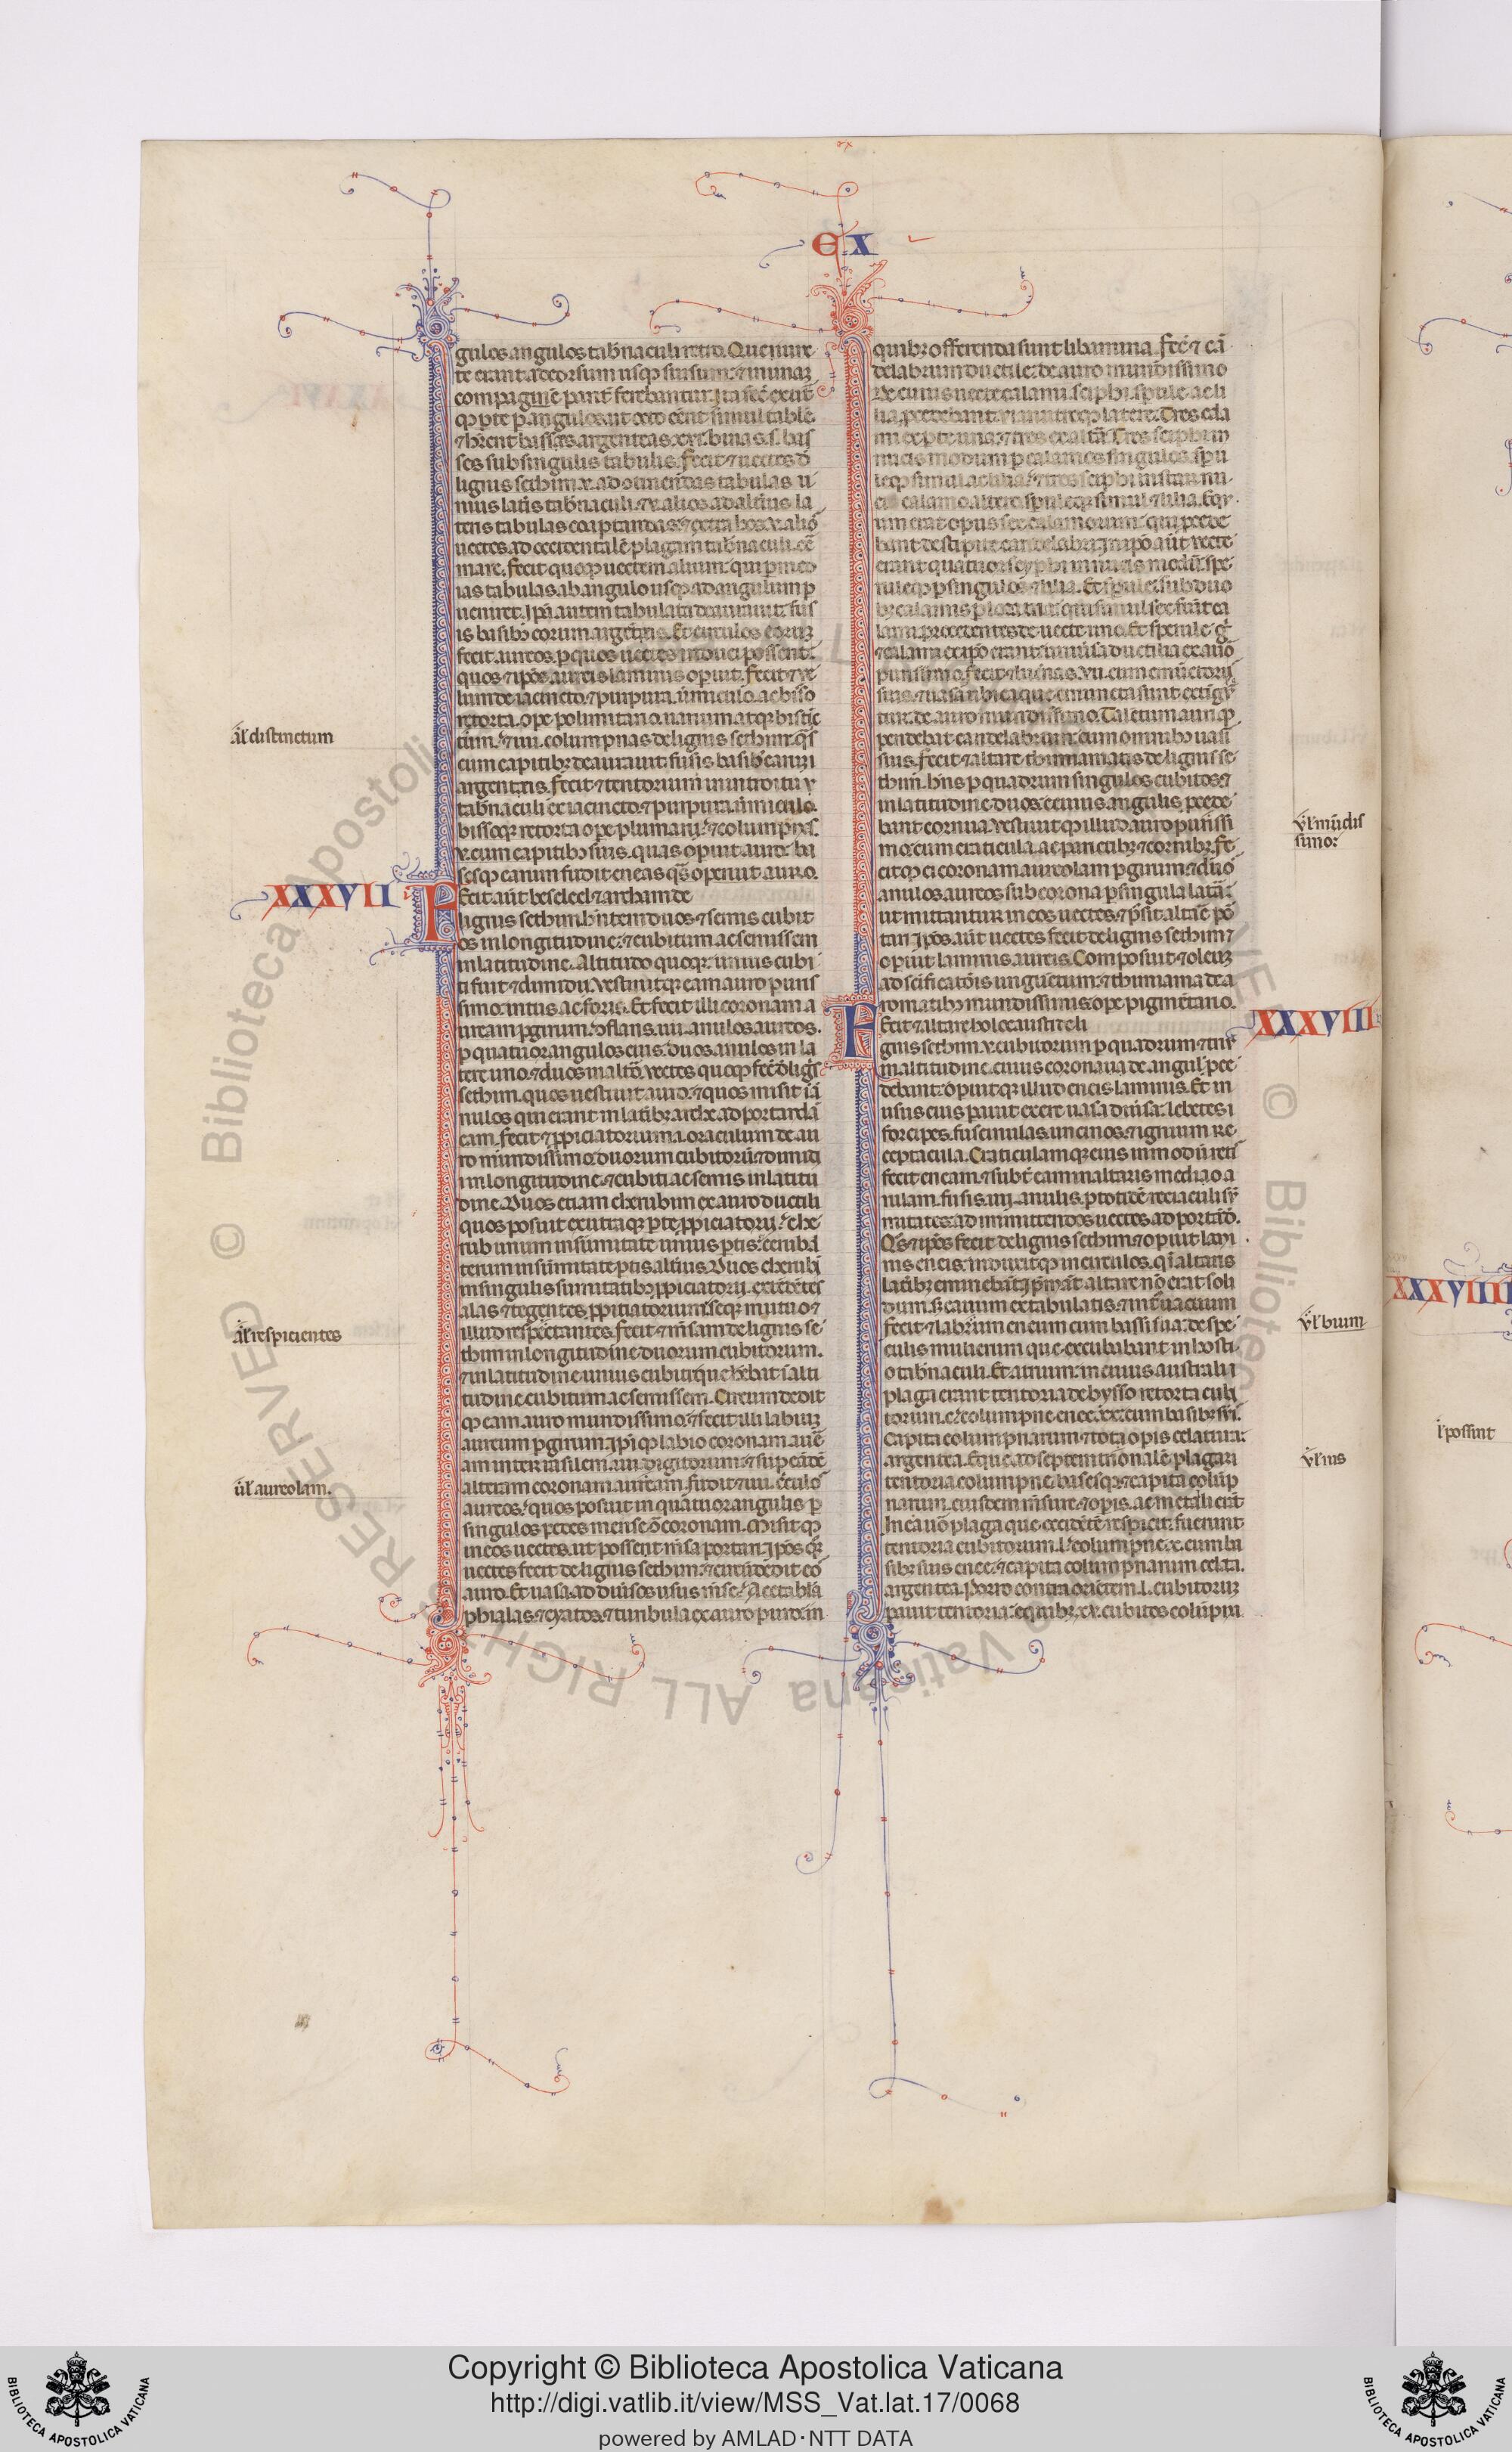 EX
gulos angulos tab̄naculi retro. Que iunc
te erant a deorsum usq; sursum: ⁊ in unaʒ
compaginē parit̄ ferebantur. Ita fec̄ ex ut̄
q; pte p angulos. ut octo eēnt simul tabule
⁊ hrēnt basses argenteas. xvi. binas .s. bas
ses sub singulis tabulis. Fecit ⁊ uectes d̄
lignis sethim. v. ad continendas tabulas u
nius lat̄is tab̄naculi. ⁊ v. alios ad alt̄ius la
teris tabulas coaptandas. ⁊ extra hos. v. alios
uectes. ad occidentalē plagam tab̄naculi. cō
mare. Fecit quoq; uectem alium: qui p medias
ias tabulas ab angulo usq; ad angulum p
ueniret. Ip̄a autem tabulata deaurauit. fus
is basib; eorum argenteis. Et circulos eorum
fecit aureos. p quos uectes induci possent:
quos ⁊ ip̄os aureis laminis opuit. Fecit ⁊ ue
lum de iacincto. ⁊ purpura. ūmiculo. ac bisso
retorta. ope polumitario. uarium atq; distic
tum. ⁊ iiii. columpnas de lignis sethim. q̄s
cum capitib; deaurauit. fusis basib; earum
argenteis. Fecit ⁊ tentorium in introitu
tab̄naculi ex iacincto. ⁊ purpura. ūmiculo.
bissoq; retorta ope plumarii. ⁊ columpnas
v. cum capitib; suis. quas opuit auro: ba
sesq; earum fudit eneas q̄s operuit auro.
Fecit aūt beseleel ⁊ archam de
lignis sethim. hn̄tem duos ⁊ semis cubit
os in longitudine: ⁊ cubitum ac semissem
in latitudine. Altitudo quoq; unius cubi
ti fuit ⁊ dimidii. Vestiuitq; eam auro puris
simo intus ac foris. Et fecit illi coronam a
uream p girum. ꝯflans. iiii. anulos aureos.
p quatuor angulos eius. Duos anulos in la
tere uno. ⁊ duos in altō. Vectes quoq; fec̄ d̄ liḡs
sethim. quos uestiuit auro. ⁊ quos misit ī ā
nulos qui erant in lat̄ib; arche. ad portandā
eam. Fecit ⁊ ppiciatorium .i. oraculum de au
ro mundissimo: duorum cubitorū ⁊ dimidii
in longitudine. ⁊ cubiti ac semis in latitu
dine. Duos etiam cherubim ex auro ductili
quos posuit ex utraq; pte ppiciatorii. che
rub unum in sūmitate unius ptis. ⁊ cherub al
terum in sūmitate ptis alt̄ius. Duos cherubī
in singulis sūmitatib; ppiciatorii. extēdētes
alas. ⁊ tegentes ppitiatorium. seq; mutuo ⁊
illud respectantes. Fecit ⁊ mēsam de lignis se
thim in longitudine duorum cubitorum.
⁊ in latitudine unius cubiti. que hēbat ī alti
tudine cubitum ac semissem. Circumdedit
q; eam auro mundissimo. ⁊ fecit illi labium
aureum p girum. ip̄iq; labio coronam aure
am inter rasilem .iiii. digitorum. ⁊ sup eādē
alteram coronam auream. Fudit ⁊ iiii. c̄culos
aureos. quos posuit in quatuor angulis p
singulos pedes mense ꝯ coronam. Misitq;
in eos uectes. ut possent mēsa portari. Ip̄os q̄;
uectes fecit de lignis sethim. ⁊ circūdedit eos
auro. Et uasa ad diūsos usus mēse. Acetabla
phialas. ⁊ cyatos. ⁊ turibula ex auro puro: in
quib; offerenda sunt libamina. Fec̄ ⁊ cā
delabrum ductile: de auro mundissimo
de cuius uecte calami. sciphi. spule. ac li
lia. pcedebant. vi. in utroq; latere. Tres cala
mi ex pte una. ⁊ tres ex altā. Tres sciphi in
nucis modum p calamos singulos. spu
leq; simul ac lilia. ⁊ tres sciphi instar nu
cis calamo altero. spuleq; simul ⁊ lilia. Equ
um erat opus sex calamorum: qui pcede
bant de stipite candelabri. In ip̄o aūt uecte
erant quatuor scyphi in nucis modū. spe
ruleq; p singulos ⁊ lilia. Et spule: sub duo
b; calamis p loca tria. qui simul sex fiūt ca
lami. pcedentes de uecte uno. Et sperule g̊
⁊ calami ex ip̄o erant: uniūsa ductilia ex auro
purissimo. Fecit ⁊ lucernas. vii. cum emūctoriis
suis. ⁊ uasa ubi ea que emuncta sunt extiguan
tur. de auro mundissimo. Talentum auri ap
pendebat candelabrum: cum omnib; uasis
suis. Fecit ⁊ altare thimiamatis de lignis se
thim. hn̄s p quadrum singulos cubitos. ⁊
in latitudine duos. e cuius angulis pcede
bant cornua. Vestiuitq; illud auro purissi
mo: cum craticula. ac parietib; ⁊ cornib;. Fe
citq; ei coronam aureolam p girum. ⁊ binos
anulos aureos sub corona p singula latā:
ut mittantur in eos uectes. ⁊ p̄sit altāe por
tari. Ip̄os aūt uectes fecit de lignis sethim ⁊
opuit laminis aureis. Composuit ⁊ oleum
ad sc̄ificatōis unguetum. ⁊ thimiama de a
romatib; mundissimis. ope pigmētario.
Fecit ⁊ altare holocausti de li
gnis sethim. v. cubitorum p quadrum. ⁊ triū
in altitudine. cuius cornua de angul̄ pce
debant: opuitq; illud eneis laminis. Et in
usus eius parauit ex ere uasa diūsa: lebetes
forcipes. fuscinulas. uncinos. ⁊ ignium re
ceptacula. Craticulamq; eius in modū retis
fecit eneam. ⁊ subt̄ eam in altaris medio a
rulam. fusis. iiii. anulis. p totidē reciaculi sū
mitates: ad immittendos uectes ad portādū.
Q̄s ⁊ ip̄os fecit de lignis sethim. ⁊ opuit lami
nis eneis. induxitq; in circulos. qi altaris
lat̄ib; eminebant. Ip̄m aūt altare nō erat soli
dum. s; cauum ex tabulatis. ⁊ int̄ uacuum
Fecit ⁊ labrum eneum cum bassi sua: de spe
culis mulierum que excubabant in hosti
o tab̄naculi. Et atrium: in cuius australi
plaga erant tentoria de bysso retorta cubi
torum .c. columpne enee. xx. cum basib; suis.
Capita columpnarum ⁊ tota opis celatura:
argentea. Eque ad septemtrionalē plagam
tentoria columpne. basesq; ⁊ capita colūp
narum. eiusdem mēsure. ⁊ opis. ac metalli erāt
In ea ūo plaga que occidētē respicit. fuerunt
tentoria cubitorum .l. columpne. x. cum ba
sib; suis enee. ⁊ capita columpnarum celata.
argentea. Porro contra orietem. l. cubitorum
parauit tentoria: e quib; xv. cubitos colūpna
XXXVII
XXXVIII
XXXVIIII
al̄ distinctum
al̄ respicientes
ūl aureolam.
ūl mūdis
simo:
ūl bium
ūl uis
l possint
Copyright © Biblioteca Apostolica Vaticana
http://digi.vatlib.it/view/MSS_Vat.lat.17/0068
powered by AMLAD·NTT DATA
BIBLIOTECA APOSTOLICA VATICANA
BIBLIOTECA APOSTOLICA VATICANA
© Biblioteca Apostolica Vaticana ALL RIGHTS RESERVED